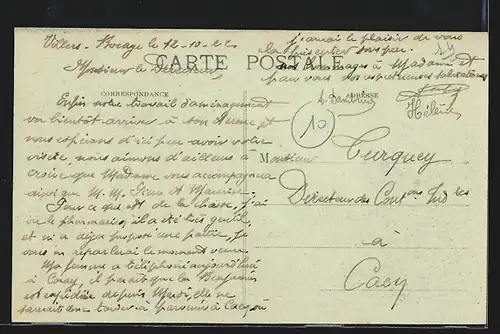 Villers-Bocage le 12-10-22
Monsieur le Directeur
CARTE POSTALE
CORRESPONDANCE
ADRESSE
Enfin notre travail d'aménagement
va bientôt arriver à son terme et
nous espérons d'ici peu avoir votre
visite, nous aimons d'ailleurs à
croire que Madame vous accompagnera
ainsi que M.M. et Maurice.
Pour ce qui est de la chasse, j'ai
vu le pharmacien, il a été très gentil
et m'a déjà proposé une partie, je
vous en reparlerai le moment venu.
Ma femme a téléphoné aujourd'hui
à il paraît que la Benjamin
est expédiée depuis Mardi, elle ne
saurait donc tarder à parvenir à Caen où
j'aurai le plaisir de vous
la présenter sous peu.
nos hommages à Madame et
pour vous nos respectueuses salutations
Hélène
10
Monsieur Turquey
Directeur des Cont ons Ind tes
à
Caen